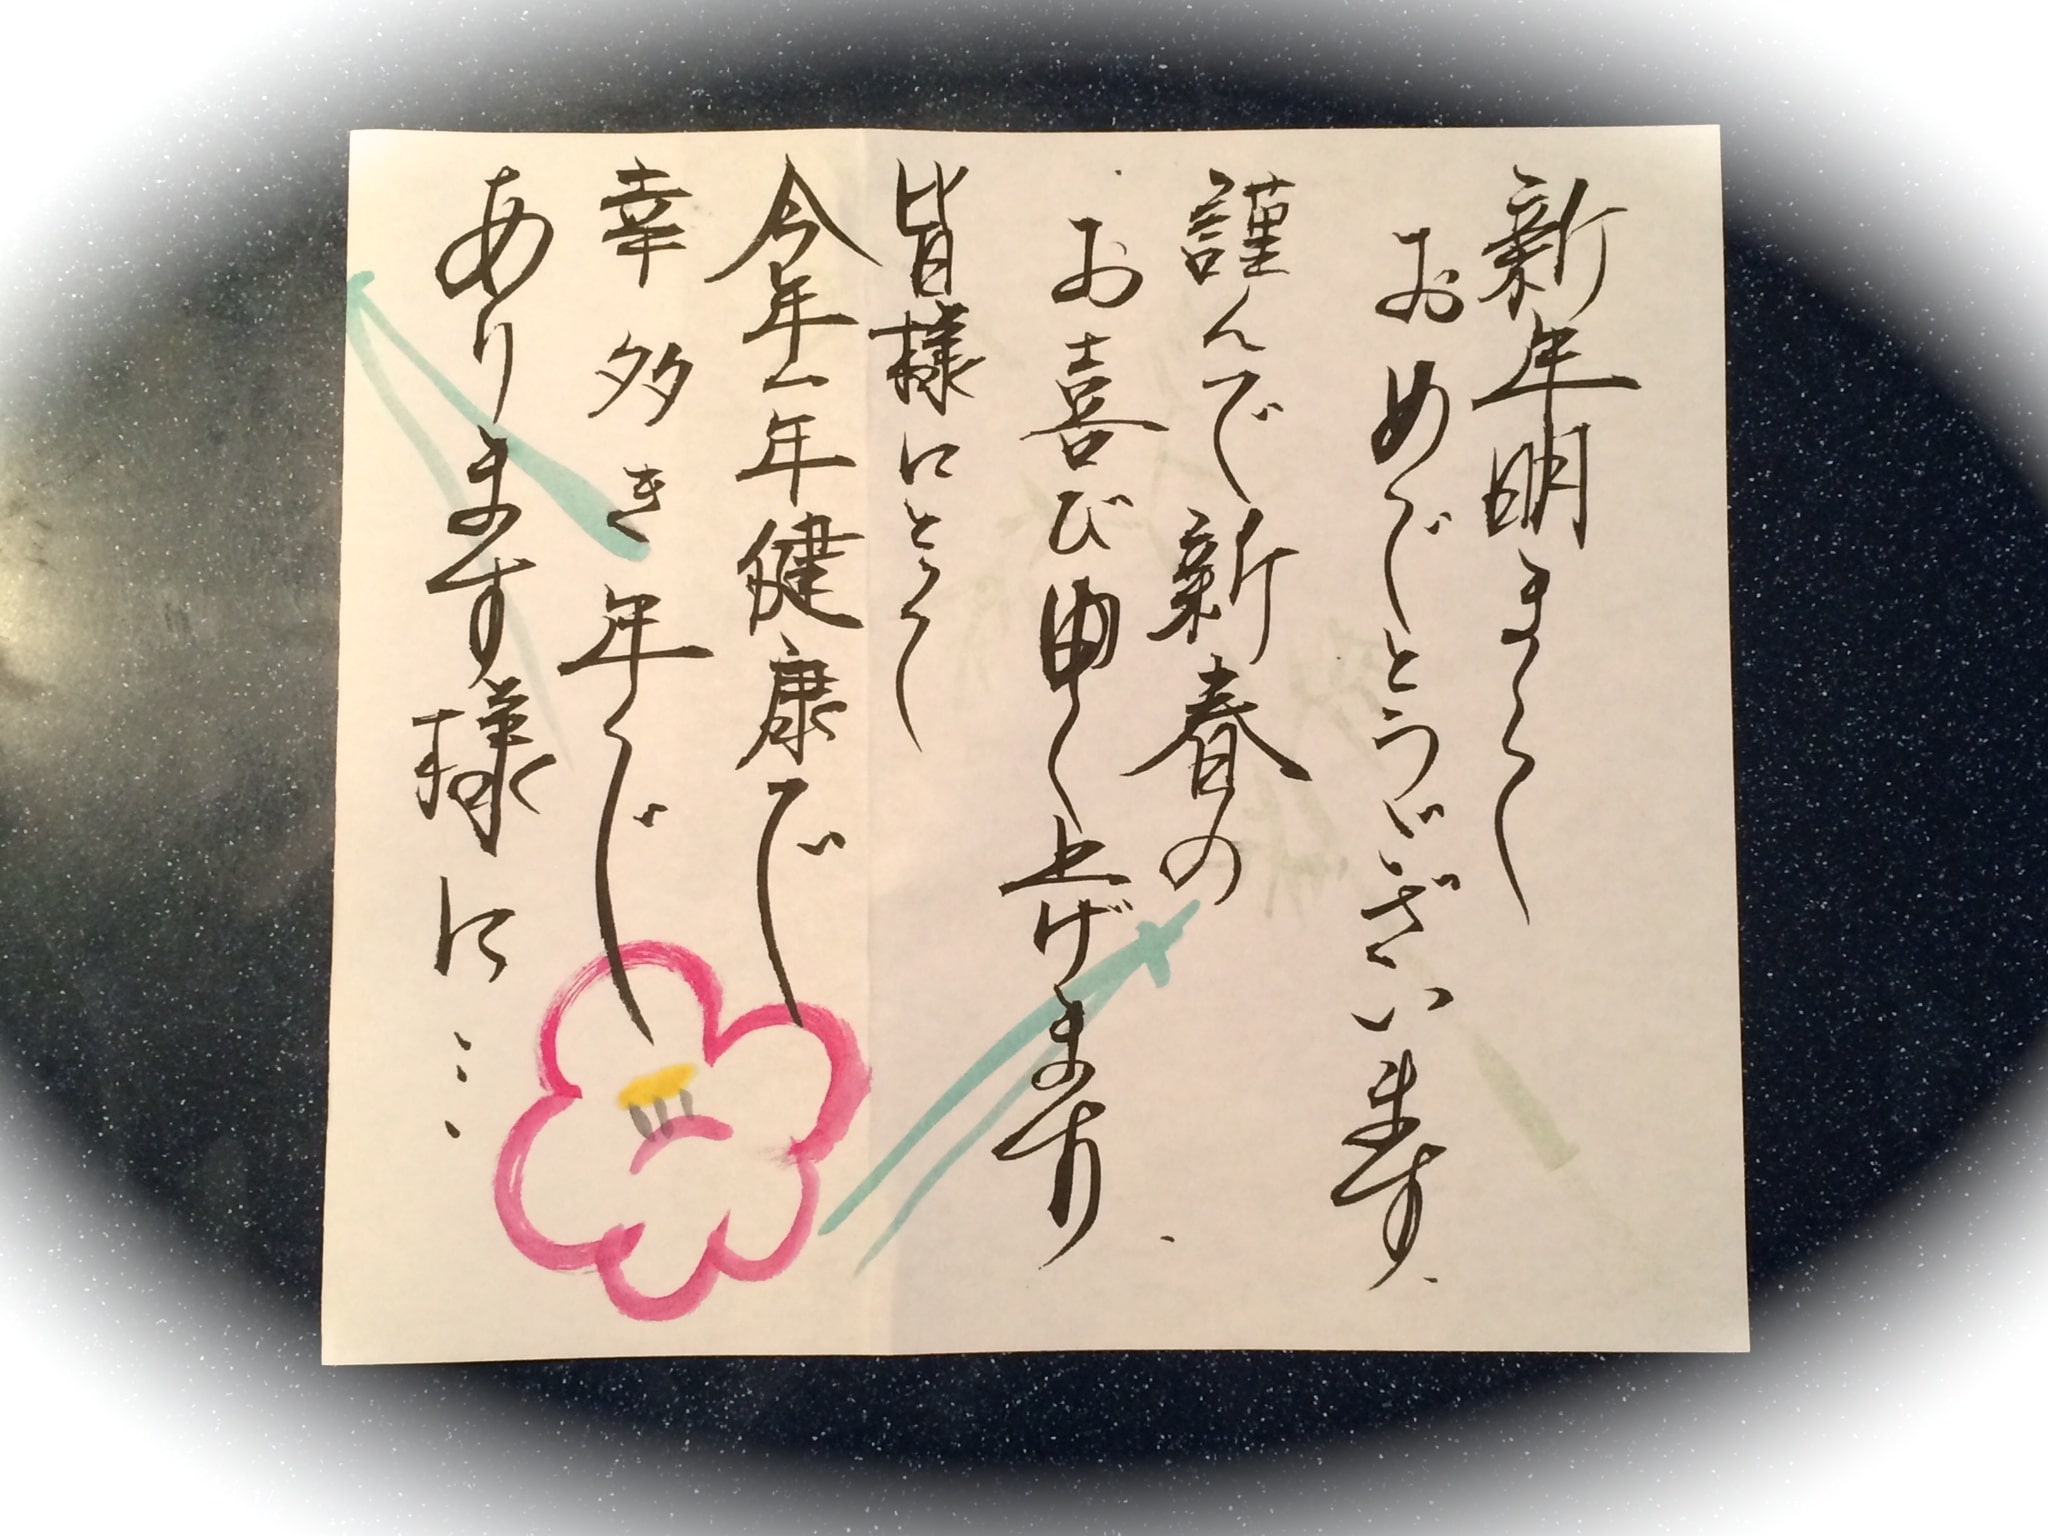 新年明まして
おめでとうございます
謹んで新春の
お喜び申し上げます
皆様にとって
今年一年健康で
幸多き年で
あります様に…